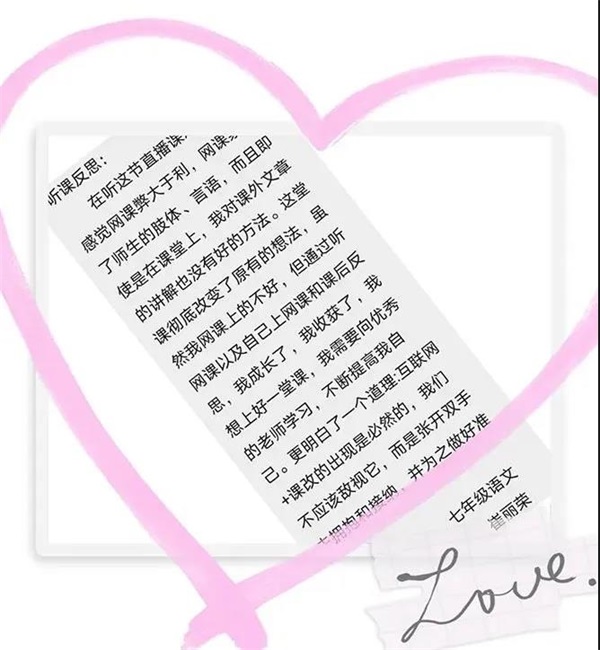 听课反思：
在听这节直播课
感觉网课弊大于利，网课
了师生的肢体、言语，而且即
使是在课堂上，我对课外文章
的讲解也没有好的方法。这堂
课彻底改变了原有的想法，虽
然我网课上的不好，但通过听
网课以及自己上网课和课后反
思，我成长了，我收获了，我
想上好一堂课，我需要向优秀
的老师学习，不断提高我自
己。更明白了一个道理:互联网
+课改的出现是必然的，我们
不应该敌视它，而是张开双手
去拥抱和接纳，并为之做好准
七年级语文
崔丽荣
Love.